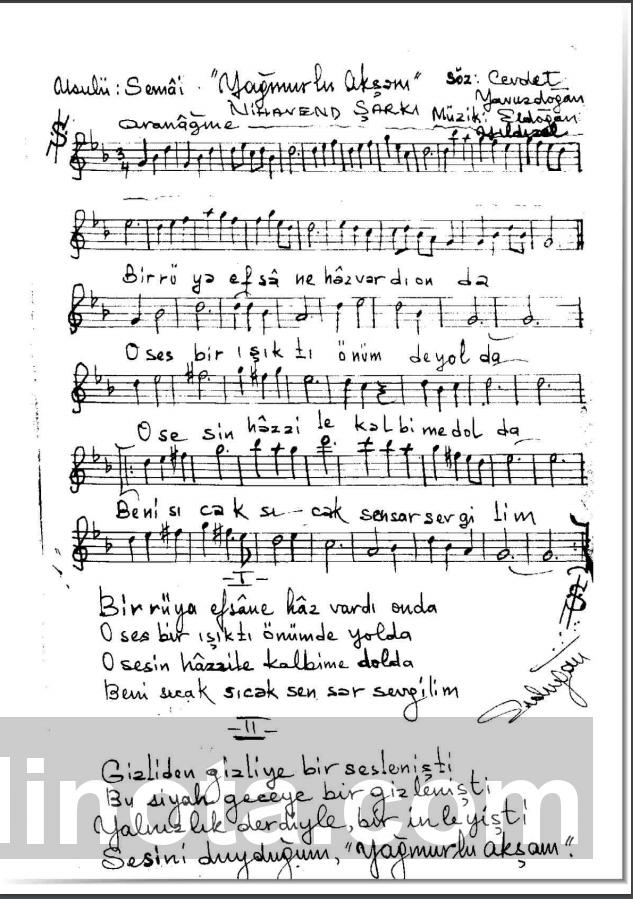 Usulü : Semâi · "Yağmurlu Akşam" Söz: Cevdet Yavuzdoğan
NİHAVEND ŞARKI Müzik: Eldoğan
aranâğme
3
4
Bir rü ya efsâ ne hâz var dı on da
O ses bir ı şık tı önüm de yol da
O se sin hâzzi le kal bi me dol da
Beni sı cak sı - cak sen sar sev gi lim
- I -
Bir rüya efsâne hâz vardı onda
O ses bir ışıktı önümde yolda
O sesin hâzzile kalbime dolda
Beni sıcak sıcak sen sar sevgilim
- II -
Gizliden gizliye bir seslenişti
Bu siyah geceye bir gizlenişti
Yalnızlık derdiyle, bir inleyişti
Sesini duyduğum, "Yağmurlu Akşam".
dinota.com